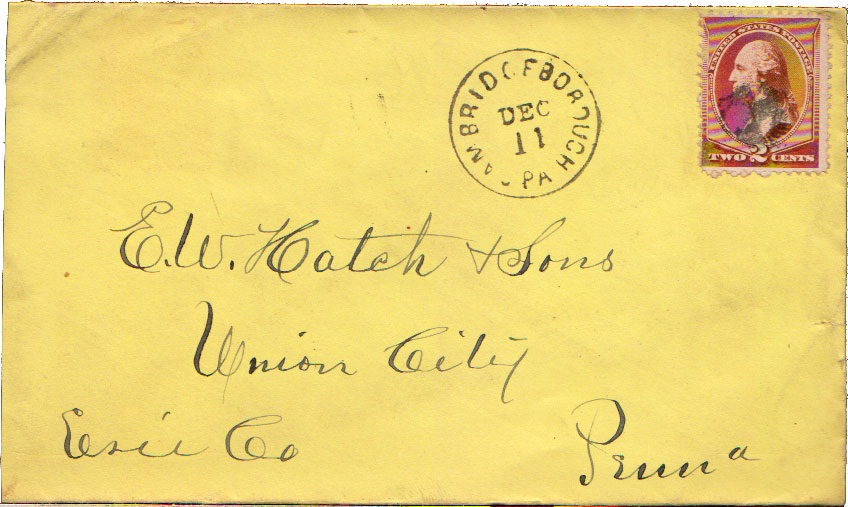 UNITED STATES POSTAGE
TWO 2 CENTS
AMBRIDGEBOROUGH
DEC
11
PA
E.W. Hatch & Sons
Union City
Erie Co
Penna